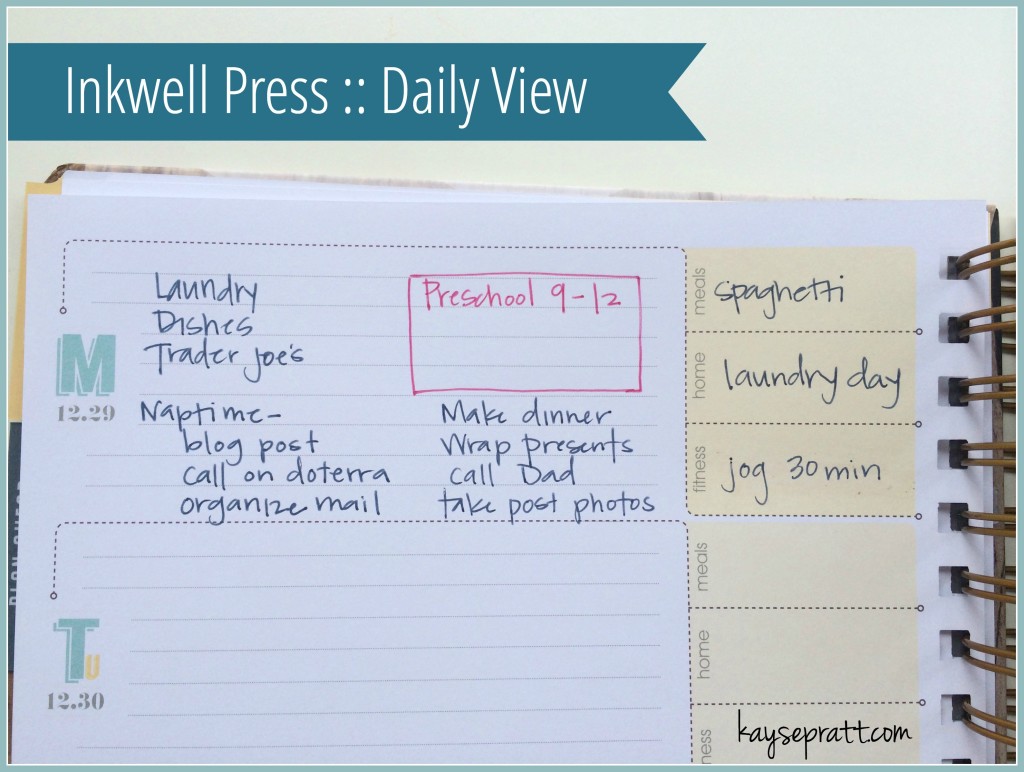 Inkwell Press :: Daily View
Laundry
Dishes
Trader Joe's
Preschool 9-12
M
12.29
Naptime-
blog post
call on doterra
organize mail
Make dinner
Wrap presents
call Dad
take post photos
meals
spaghetti
home
laundry day
fitness
jog 30 min
TU
12.30
meals
home
ness
kaysepratt.com